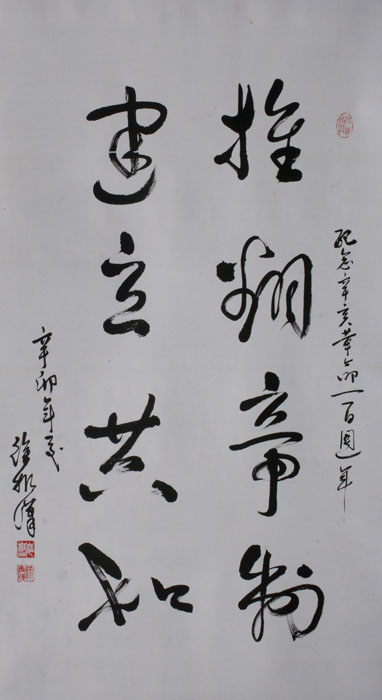 纪念辛亥革命一百周年
推翻帝制
建立共和
辛卯年夏